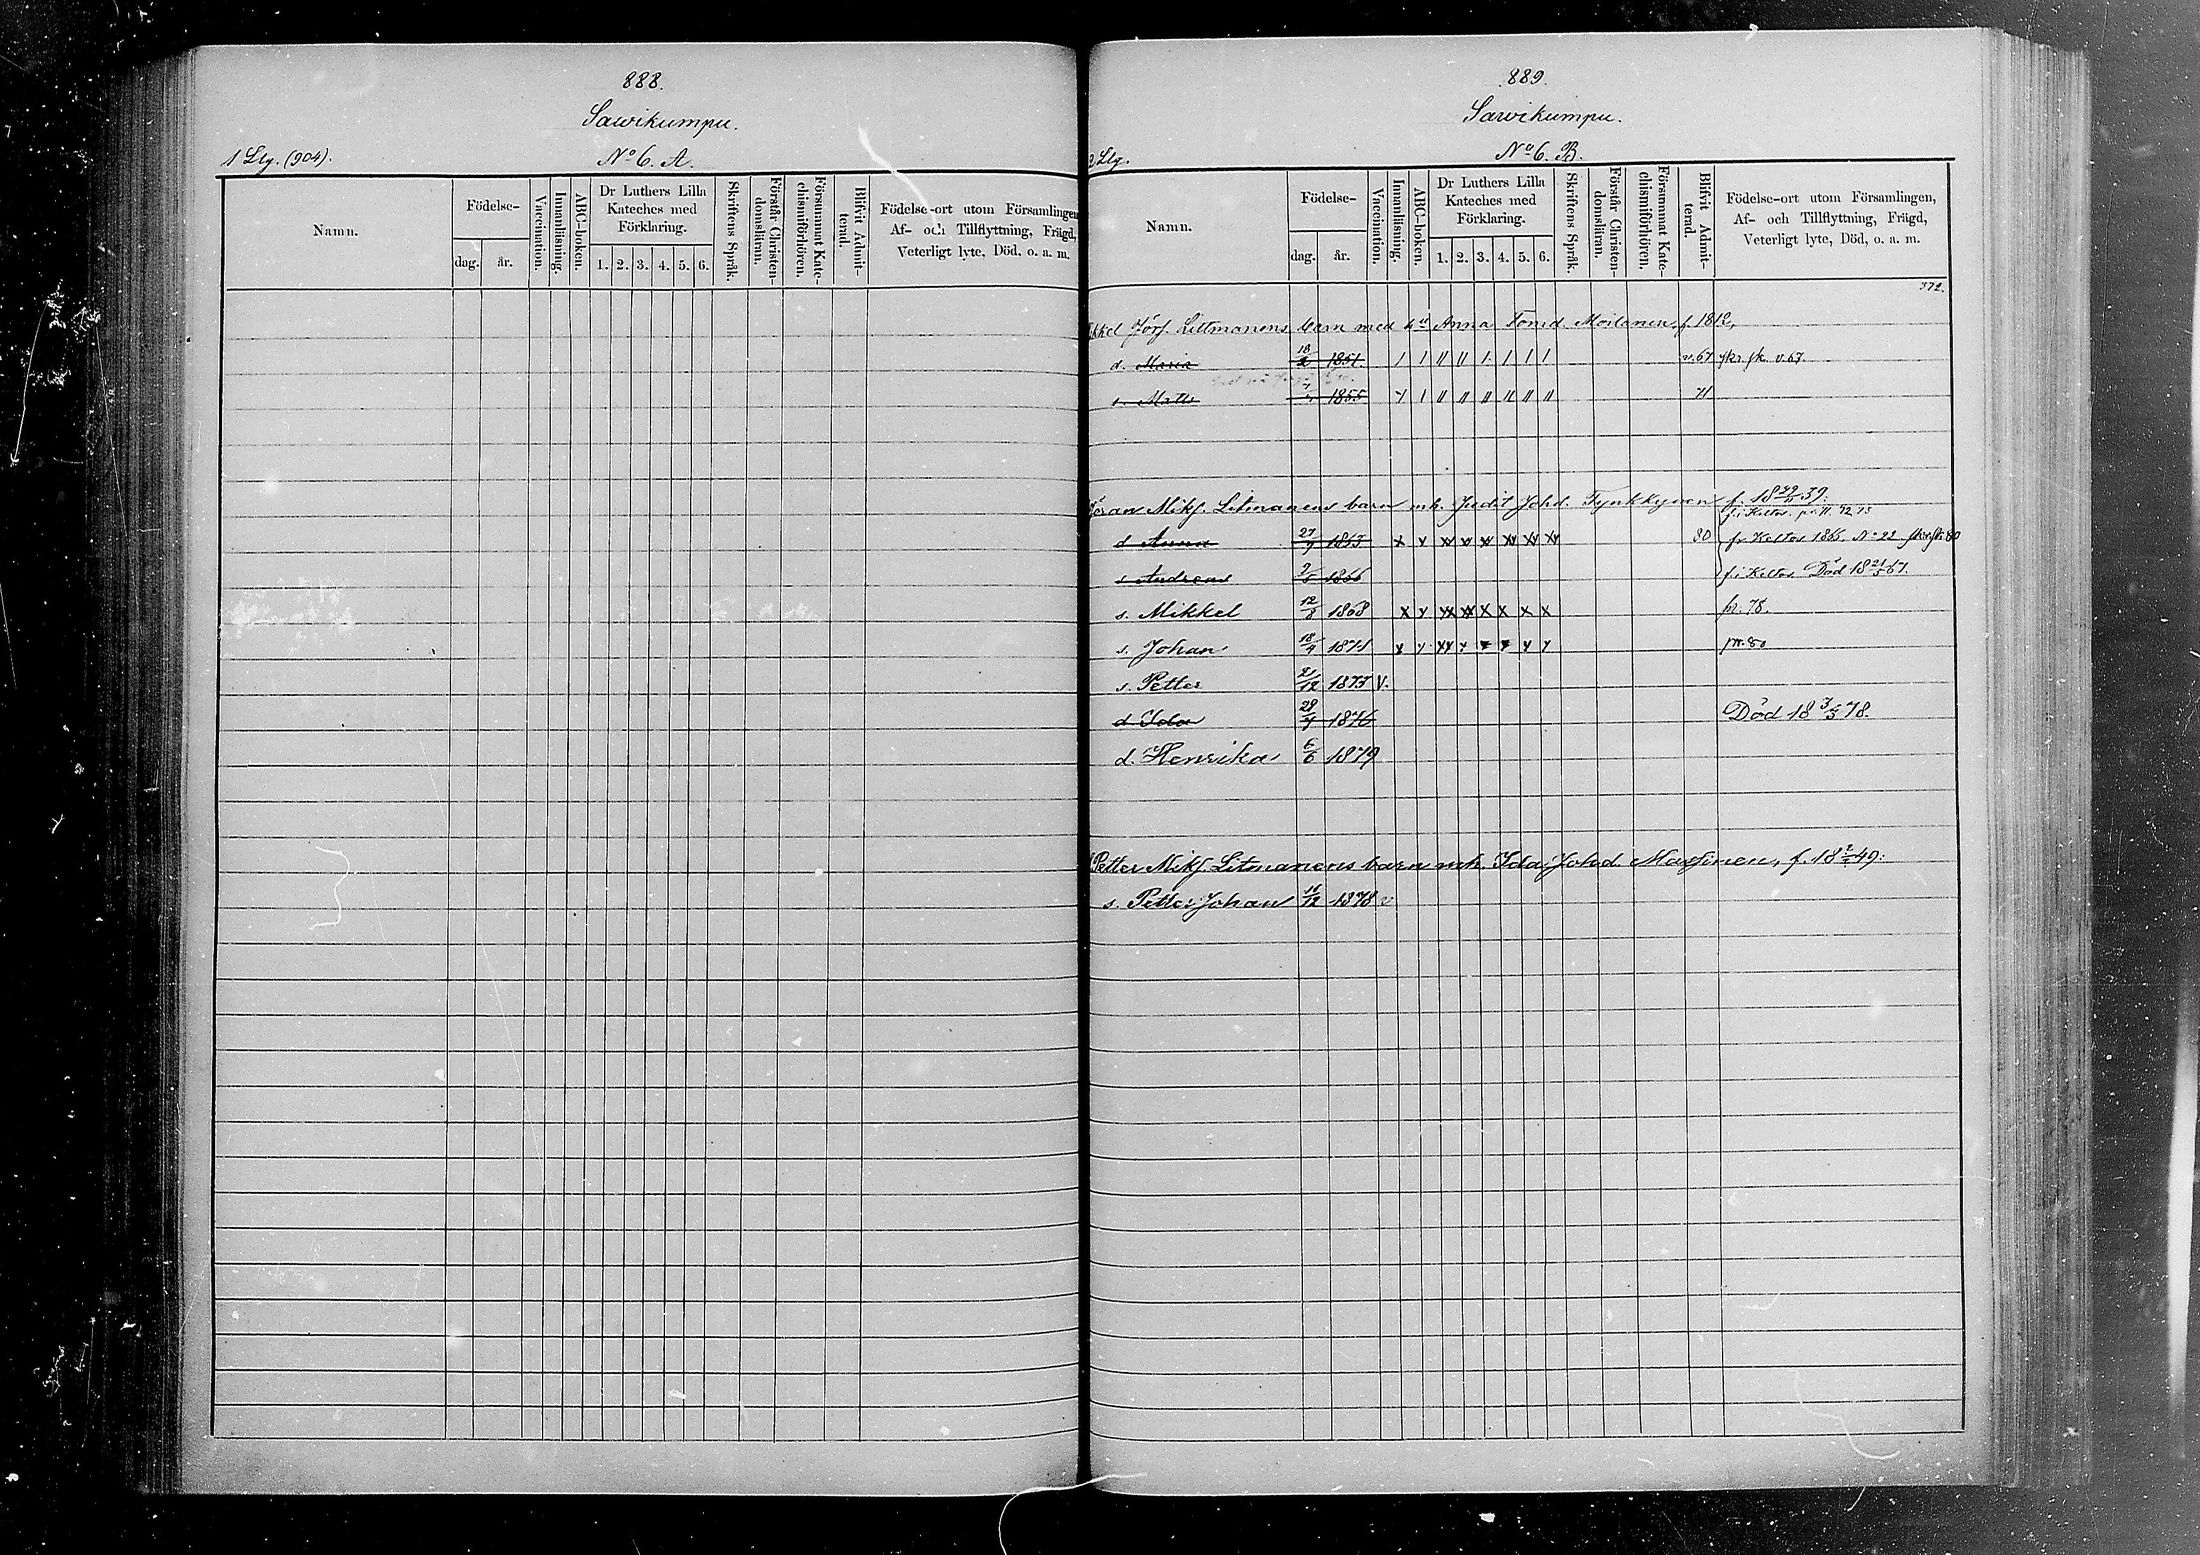 888.
Sawikumpu.
1 Llg. (904).
No 6. A.
Namn.
Födelse-
dag. år.
Vaccination.
Innanläsning.
ABC-boken.
Dr Luthers Lilla
Kateches med
Förklaring.
1. 2. 3. 4. 5. 6.
Skriftens Språk.
Förstår Christen-
domsläran.
Försummat Kate-
chismiförhören.
Blifvit Admit-
terad.
Födelse-ort utom Församlingen,
Af- och Tillflyttning, Frägd,
Veterligt lyte, Död, o. a. m.
889.
Sawikumpu.
2 Llg.
No 6. B.
Namn.
Födelse-
dag. år.
Vaccination.
Innanläsning.
ABC-boken.
Dr Luthers Lilla
Kateches med
Förklaring.
1. 2. 3. 4. 5. 6.
Skriftens Språk.
Förstår Christen-
domsläran.
Försummat Kate-
chismiförhören.
Blifvit Admit-
terad.
Födelse-ort utom Församlingen,
Af- och Tillflyttning, Frägd,
Veterligt lyte, Död, o. a. m.
372.
kkel Jörf. Littmanens barn med hu Anna Tomd. Moilanen, f. 1812,
d. Maria 18/2 1851. v. 67 skr. sk. v. 67.
s. Matts 1855 71
Göran Mikf. Litmanens barn mh. Judit Johd. Tynkkynen f. 18 39:
d Anna 27/9 1863 x x xx xx xx xx xx xx 80 fr Keltos 1865. No 22
s Andreas 2/5 1866 f. i Keltos. Död 18 21/5 67.
s. Mikkel 12/8 1868 x x xx xx x x x x pr. 78.
s. Johan 18/4 1871 pr. 80
s. Petter 21/12 1873 v.
d Ida 28/4 1876 Död 18 3/3 78.
d. Henrika 6/6 1879
Petter Mikf. Litmanens barn mh. Ida Johd. Massinen, f. 18 2/2 49:
s. Petter Johan 11/12 1878 v